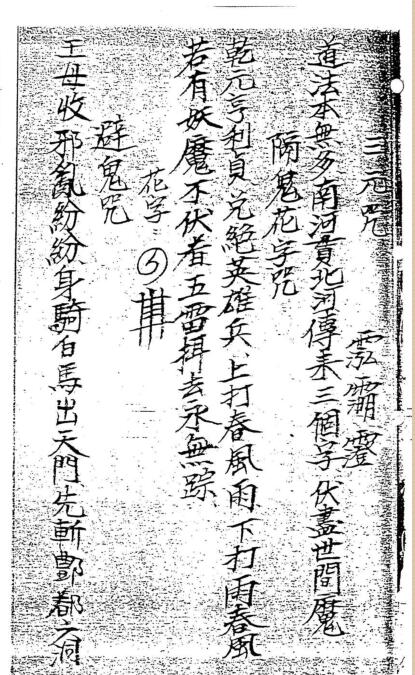 三元咒
道法本無多南河貫北河傳來三個字伏盡世間魔
隔鬼花字咒
乾元亨利貞兌絕英雄兵上打春風雨下打雨春風
若有妖魔不伏者五雷押去永無踪
花字
避鬼咒
王母收邪亂紛紛身騎白馬出天門先斬酆都六洞